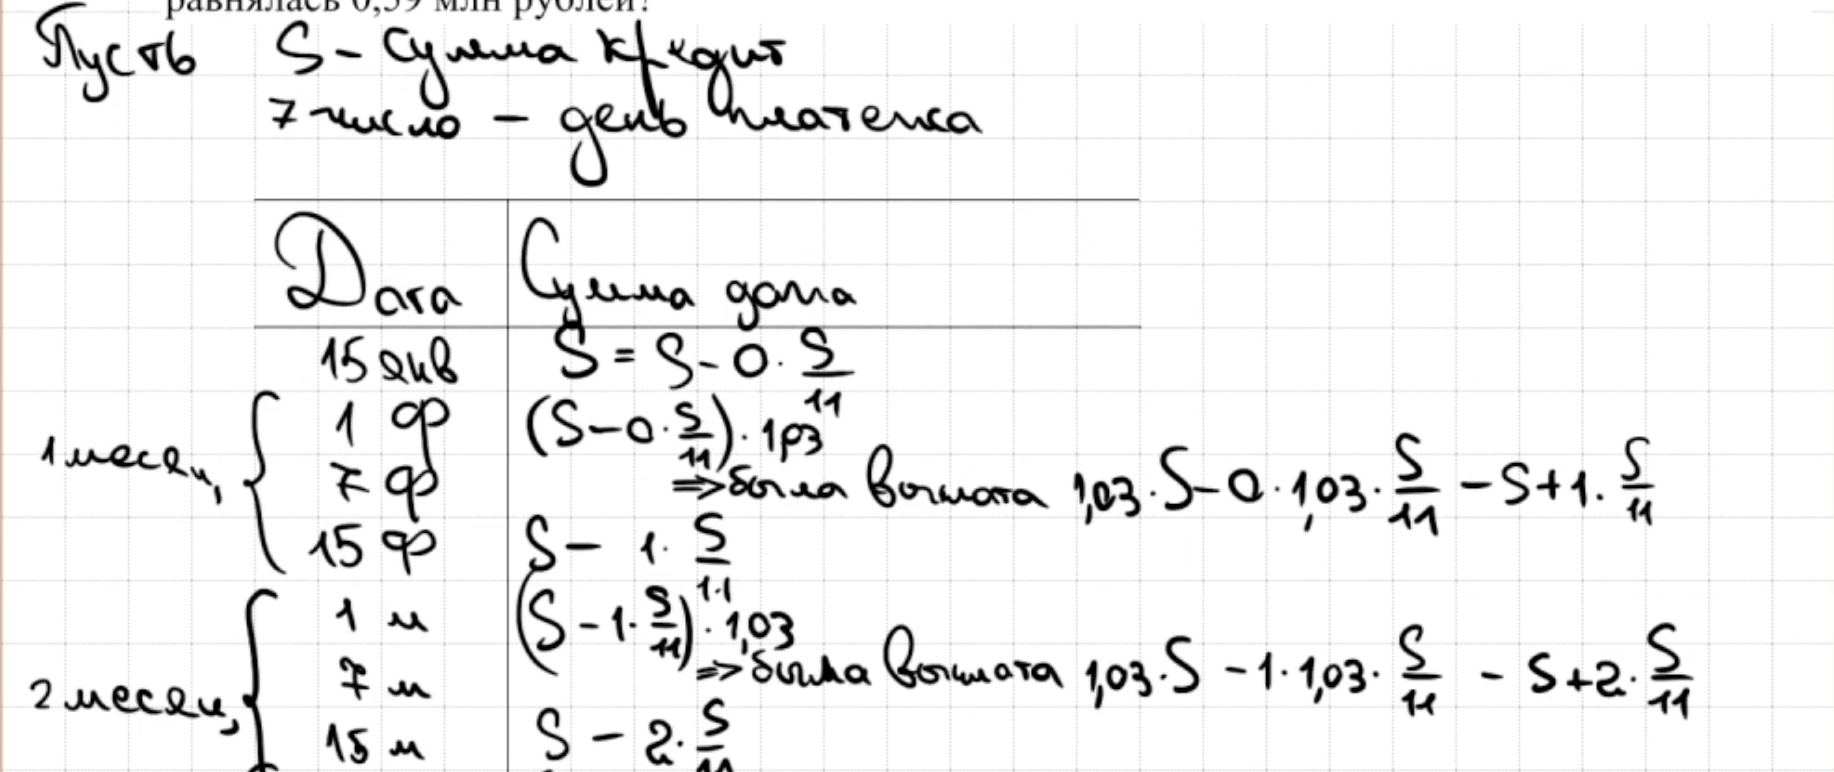 равнялась 0,59 млн рублей?
Пусть S - сумма кредит
7 число - день платежа
Дата Сумма долга
15 янв S = S - 0 · S/11
1 ф (S - 0 · S/11) · 1,03
1 месяц 7 ф ⇒ была выплата 1,03 · S - 0 · 1,03 · S/11 - S + 1 · S/11
15 ф S - 1 · S/11
1 м (S - 1 · S/11) · 1,03
2 месяц 7 м ⇒ была выплата 1,03 · S - 1 · 1,03 · S/11 - S + 2 · S/11
15 м S - 2 · S/11